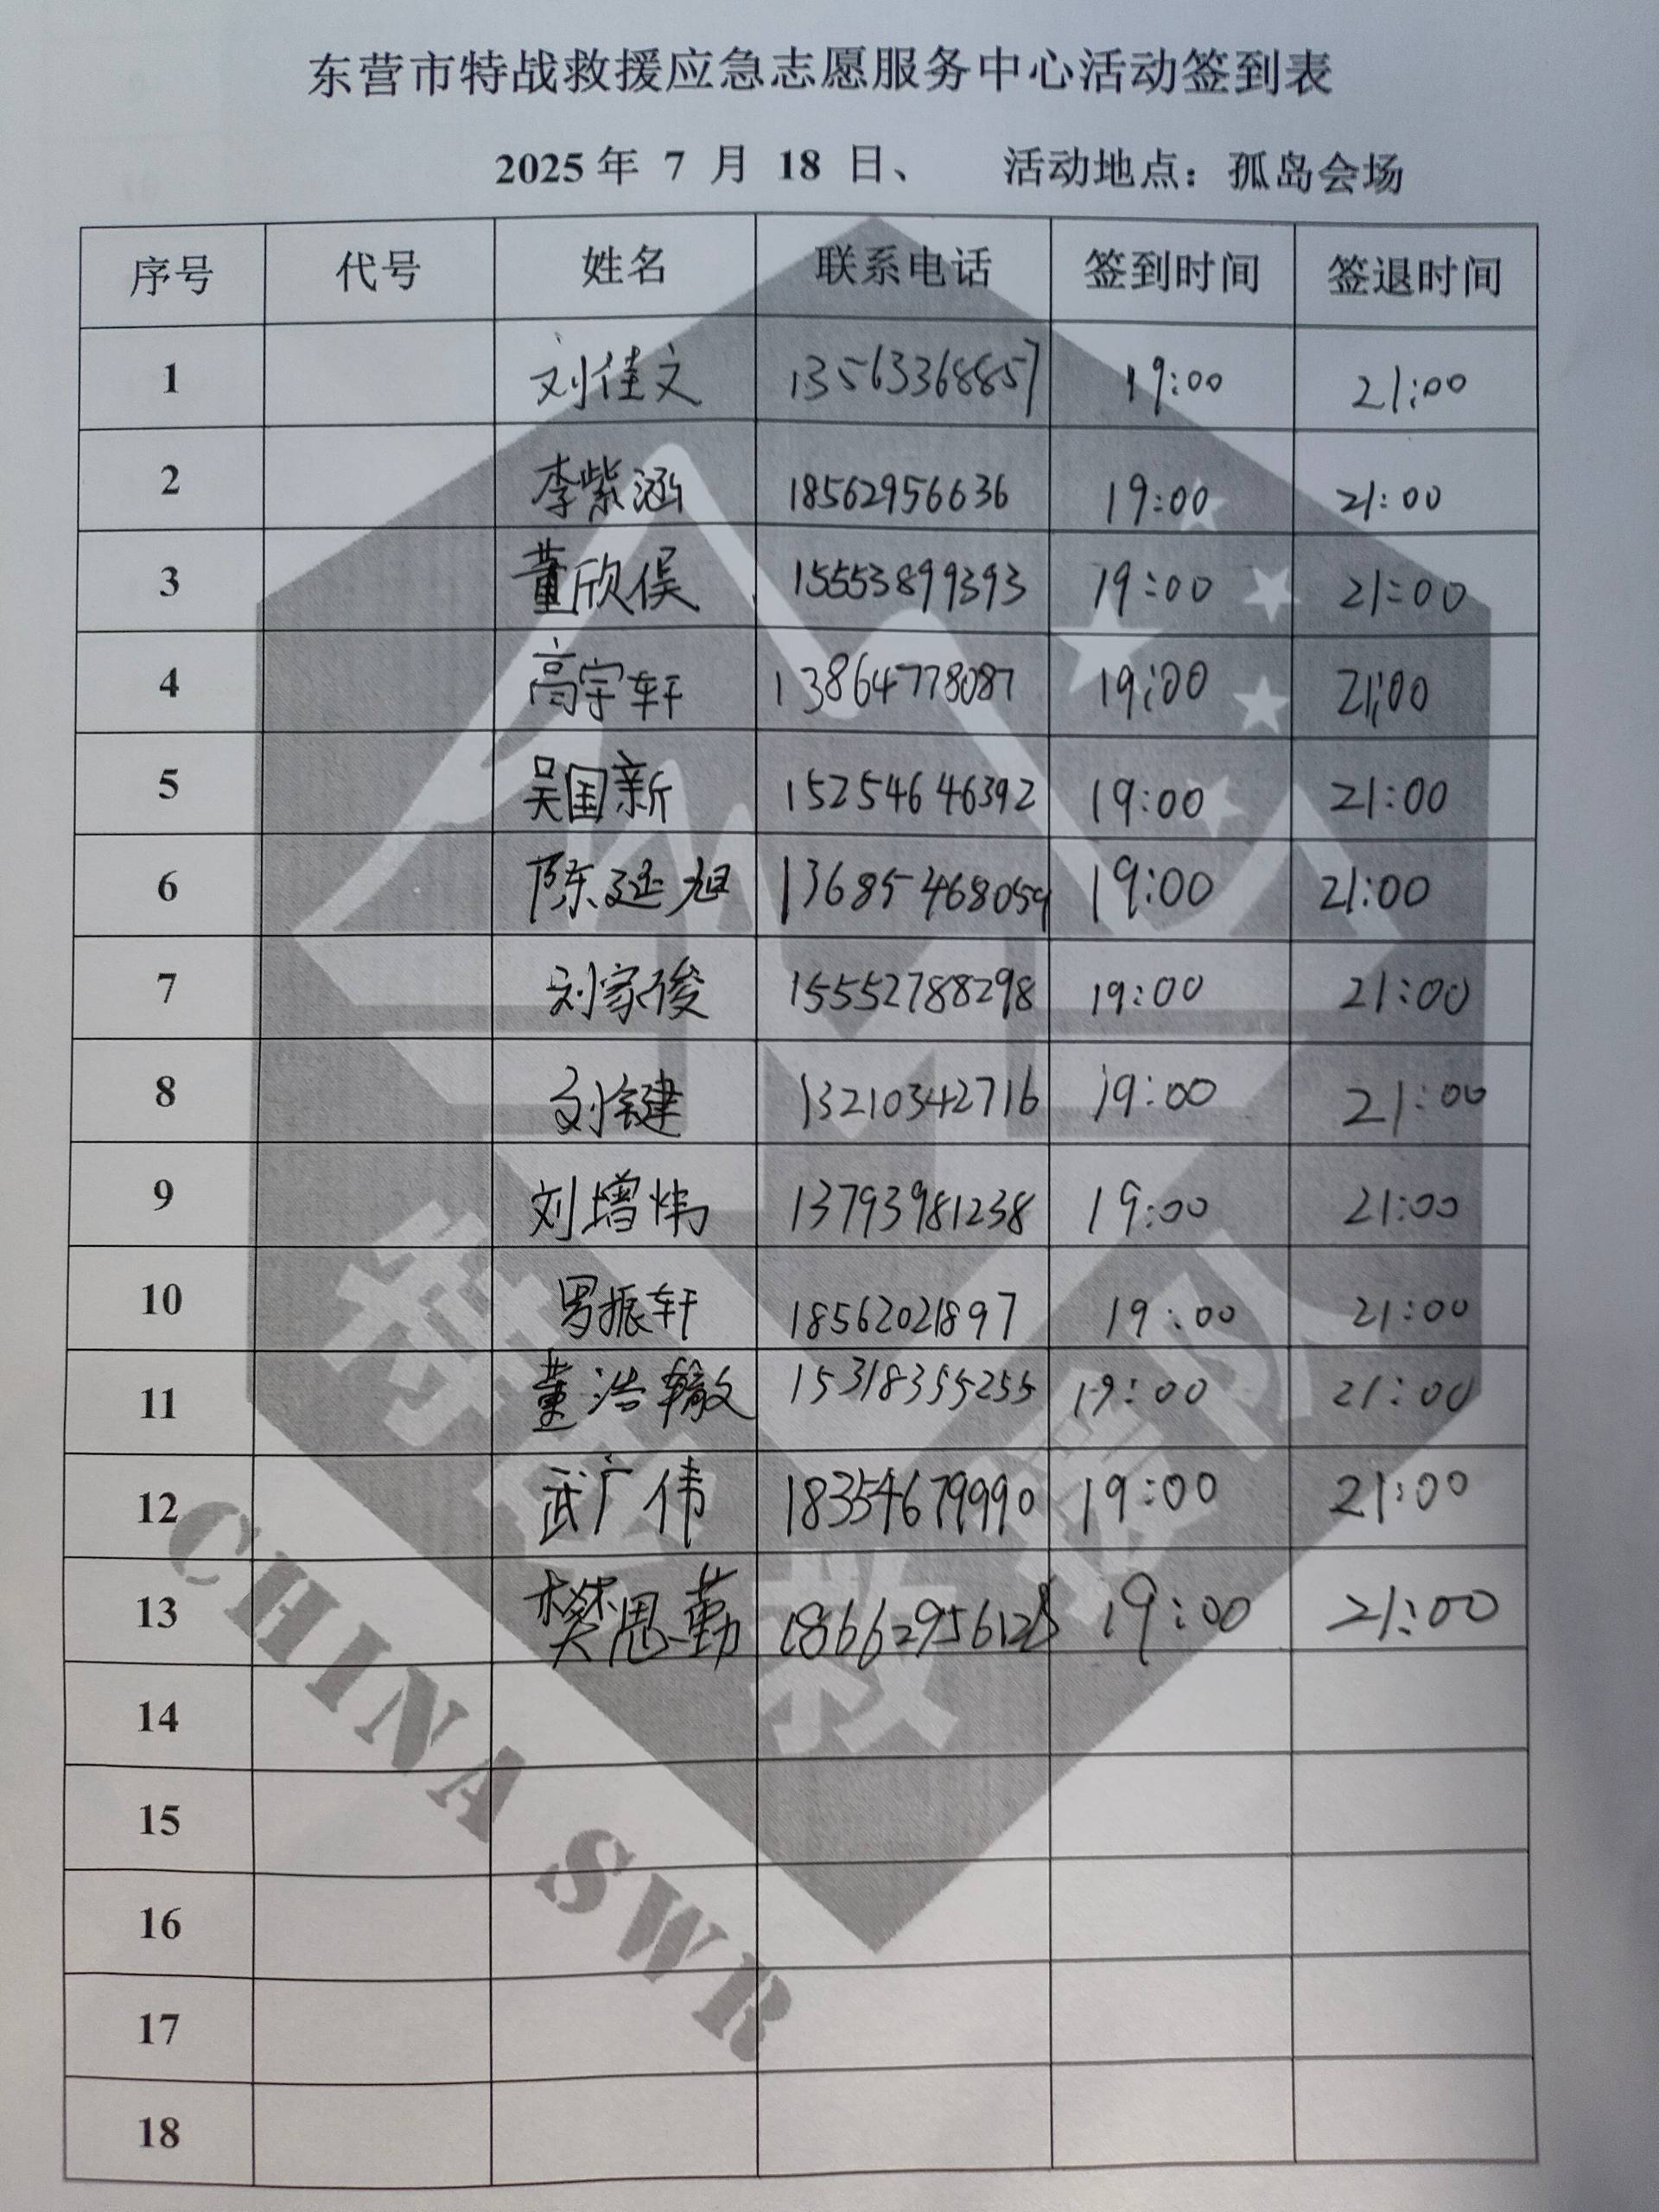 东营市特战救援应急志愿服务中心活动签到表
2025年 7 月 18 日、 活动地点：孤岛会场
序号 代号 姓名 联系电话 签到时间 签退时间
1 刘佳文 13563368857 19:00 21:00
2 李紫涵 18562956636 19:00 21:00
3 董欣俣 15553899393 19:00 21:00
4 高宇轩 13864778087 19:00 21:00
5 吴国新 15254646392 19:00 21:00
6 陈延旭 13685468059 19:00 21:00
7 刘家俊 15552788298 19:00 21:00
8 刘键 13210342716 19:00 21:00
9 刘增炜 13793981238 19:00 21:00
10 罗振轩 18562021897 19:00 21:00
11 董浩辙 15318355255 19:00 21:00
12 武广伟 18354679990 19:00 21:00
13 樊思勤 19:00 21:00
14
15
16
17
18
特战救援队
CHINA SWR